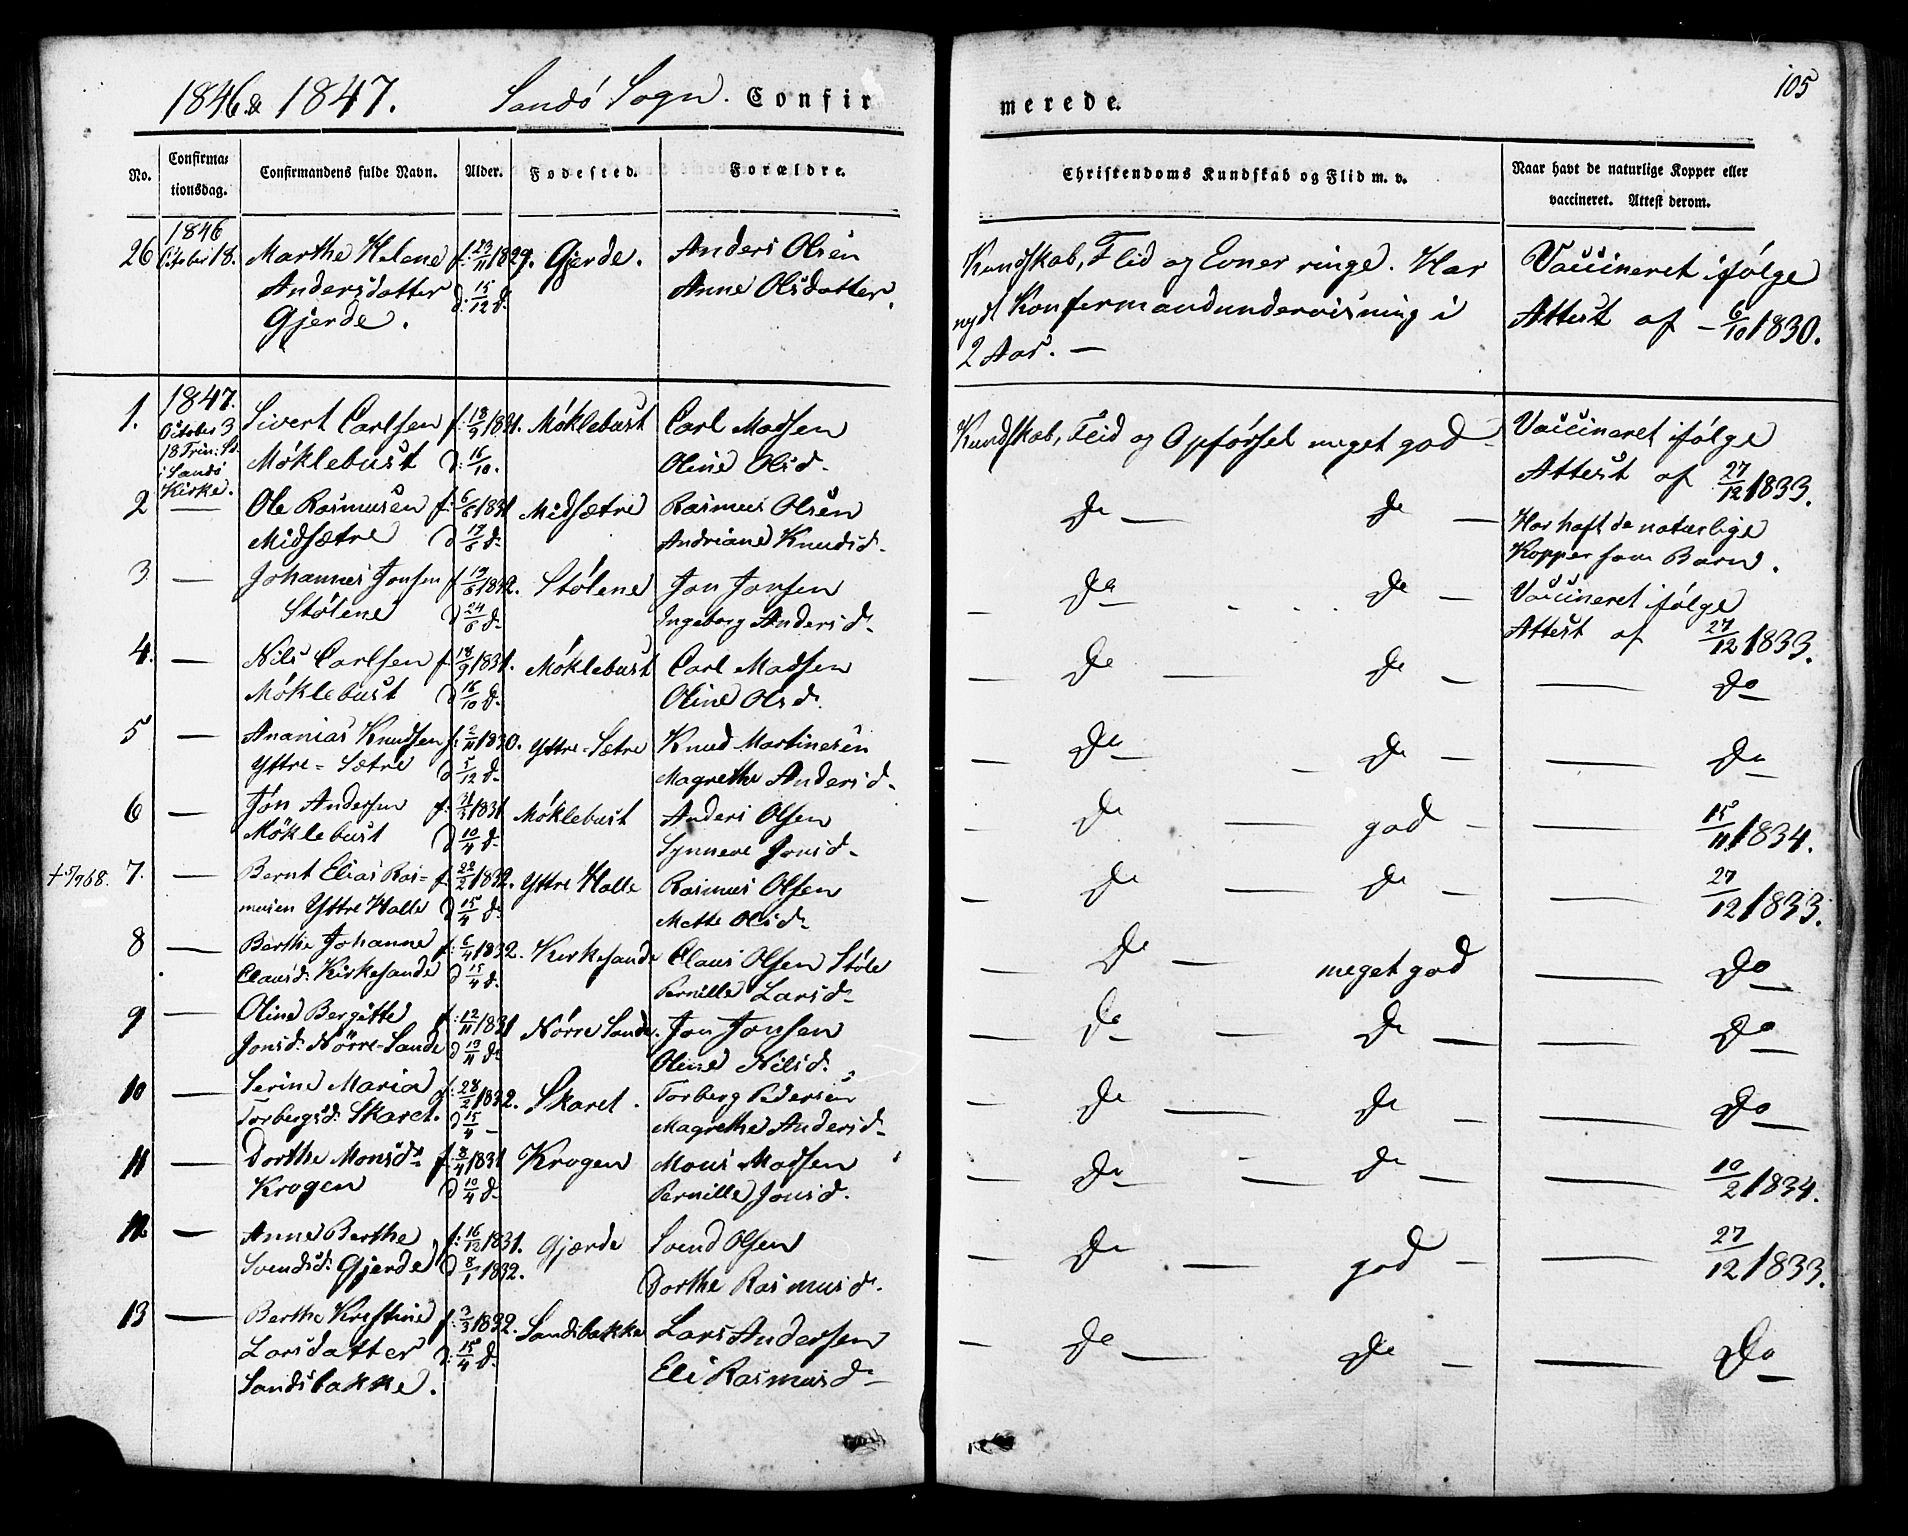 1846 & 1847. Sandö Sogn. Confir
merede.
105
No.
Confirma-
tionsdag.
Confirmandens fulde Navn.
Alder.
Fødested.
Forældre.
Christendoms Kundskab og Flid m. v.
Naar havt de naturlige Kopper eller
vaccineret. Attest derom.
1846
26 October 18. Marthe Helene f: 23/11 1829. Gjerde. Anders Olsen
Andersdatter d: 15/12 d. Anne Olsdatter.
Gjerde.
Kundskab, Flid og Evner ringe. Har
nydt Konfermandundervisning i
2 Aar. —
Vaccineret ifølge
Attest af - 6/10 1830.
1847.
1. October 3 Sivert Carlsen f: 18/9 1831. Möklebust Carl Madsen
18 Trin: S. i Sandö Kirke. Möklebust d: 16/10. Oline Olsd.
Kundskab, Flid og Opførsel meget god
Vaccineret ifølge
Attest af 27/12 1833.
2 — Ole Rasmusen f. 6/6 1831 Midsætre Rasmus Olsen
Midsætre d 19/6 d. Andriane Knudsd.
Do — Do —
Har haft de naturlige
Kopper som Barn.
3 — Johannes Jonsen f. 13/6 1832. Stölene Jon Jonsen
Stölene d 24/6 d. Ingeborg Andersd.
— Do Do —
Vaccineret ifølge
Attest af 27/12 1833.
4. — Nils Carlsen f. 18/9 1831. Möklebust Carl Madsen
Möklebust d 16/10 d. Oline Olsd.
Do — Do — — Do
5 — Ananias Knudsen f: 2/11 1830. Yttre-Sætre Knud Martinesen
Yttre=Sætre d 5/12 d. Magrethe Andersd.
— Do — Do — — Do
6 — Jon Andersen f. 31/3 1831 Möklebust Anders Olsen
Möklebust d 10/4 d. Synneve Jonsd.
— Do — god — — 15/11 1834.
7. — Bernt Elias Ras= f. 22/2 1832. Yttre Halle Rasmus Olsen
musen Yttre Halle d 15/4 d. Mette Olsd.
— Do — Do — — 27/12 1833.
8 — Berthe Johanne f: 6/4 1832. Kirkesande Claus Olsen Stöle
Clausd: Kirkesande d 15/4 d. Pernille Larsd.
— Do — meget god — Do
9 — Oline Bergitte f: 12/11 1831 Nörre Sande. Jon Jonsen
Jonsd: Nörre-Sande d 13/11 d. Oline Nilsd.
— Do — Do — — Do
10 — Serine Maria f: 28/2 1832. Skaret. Torberg Pedersen
Torbergsd: Skaret. d 15/4 — Magrethe Andersd.
— Do — Do — — Do
11 — Dorthe Monsd. f: 8/4 1831 Krogen Mons Madsen
Krogen d 10/4 d. Pernille Jonsd.
— Do — Do — — 10/2 1834.
12. — Anne Berthe f: 16/12 1831. Gjærde Svend Olsen
Svendsd: Gjerde d 8/1 1832. Dorthe Rasmusd.
— Do — god — — 27/12 1833.
13 — Berthe Kristine f: 3/3 1832. Sandsbakke Lars Andersen
Larsdatter d: 15/4 d. Eli Rasmusd.
Sandsbakke.
— Do — Do — — Do